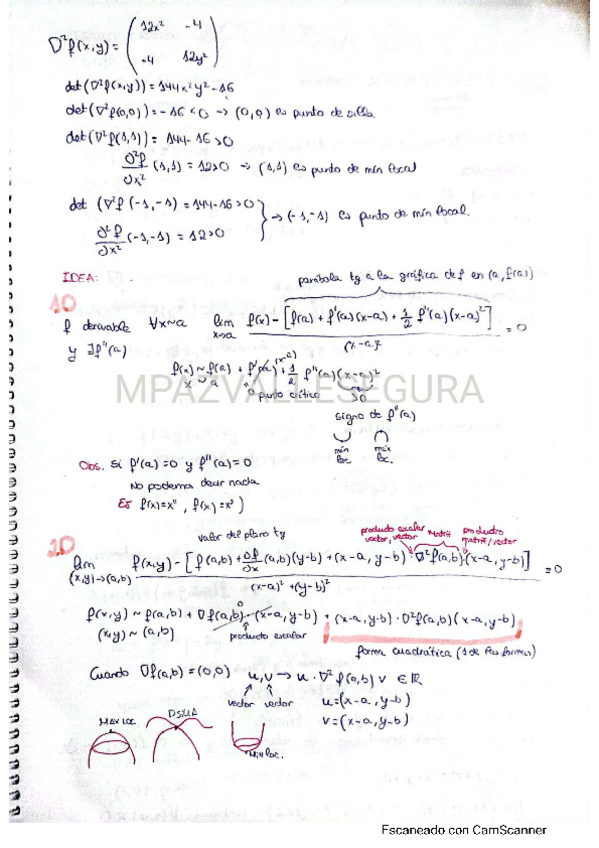 ∇²f(x,y) = ( 12x² -4
-4 12y² )
det(∇²f(x,y)) = 144x²y² - 16
det(∇²f(0,0)) = -16 < 0 → (0,0) es punto de silla
det(∇²f(1,1)) = 144 - 16 > 0
∂²f/∂x² (1,1) = 12 > 0 → (1,1) es punto de mín local
det (∇²f (-1,-1) = 144-16 > 0
∂²f/∂x² (-1,-1) = 12 > 0 } → (-1,-1) es punto de mín local.
IDEA:
parábola tg a la gráfica de f en (a, f(a))
1D
f derivable ∀x~a lim x→a f(x) - [f(a) + f'(a)(x-a) + 1/2 f''(a)(x-a)²] / (x-a)² = 0
y ∃f''(a)
f(x) ~ f(a) + f'(a)(x-a) + 1/2 f''(a)(x-a)²
x ~ a
"0 punto crítico
≥0
signo de f''(a)
mín loc. máx loc.
Obs. Si f'(a) = 0 y f''(a) = 0
No podemos decir nada
Ej f(x)=x⁴, f(x)=x³)
2D
valor del plano tg
producto escalar vector, vector
Matriz
producto matriz/vector
lim (x,y)→(a,b) f(x,y) - [f(a,b) + ∂f/∂x (a,b)(y-b) + (x-a, y-b) · ∇²f(a,b)(x-a, y-b)] / (x-a)² + (y-b)² = 0
f(x,y) ~ f(a,b) + ∇f(a,b) · (x-a, y-b) + (x-a, y-b) · ∇²f(a,b)(x-a, y-b)
0
(x,y) ~ (a,b)
producto escalar
forma cuadrática (1 de las formas)
Cuando ∇f(a,b) = (0,0) u,v → u · ∇²f(a,b) v ∈ ℝ
vector vector
u=(x-a, y-b)
v=(x-a, y-b)
MAX LOC
P.SILLA
Mín loc.
MPAZVALLESEGURA
Escaneado con CamScanner